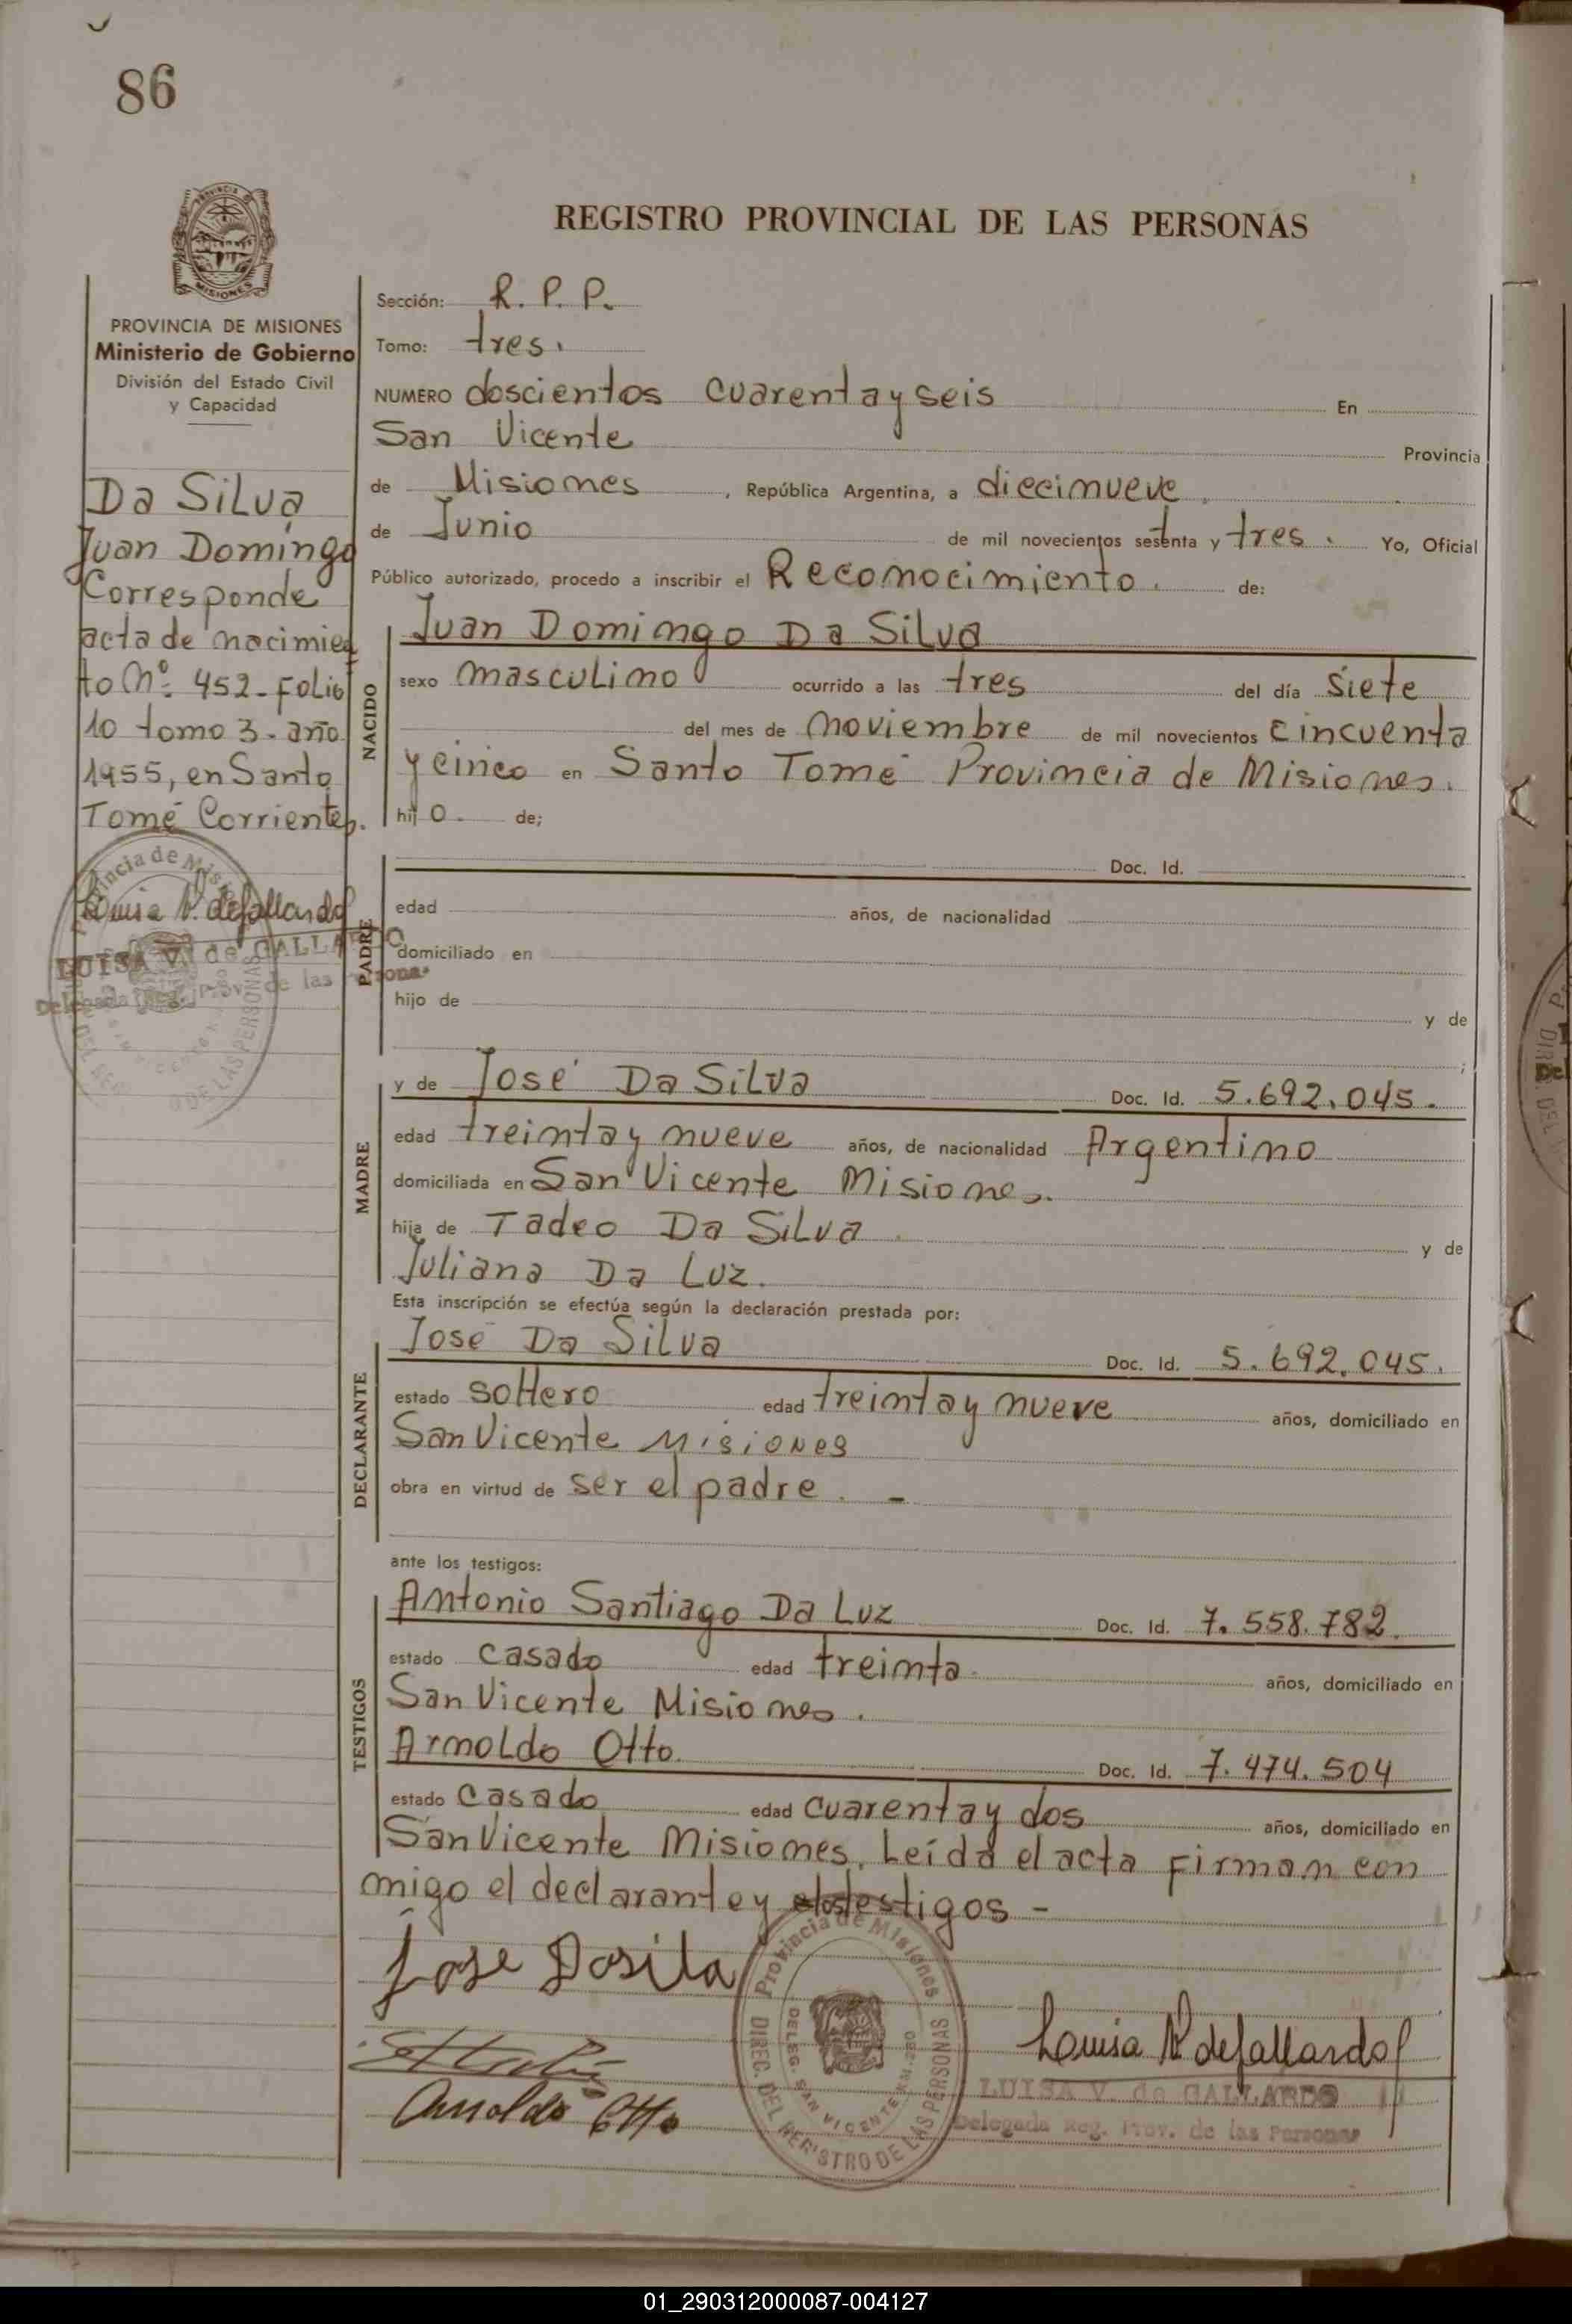 86
REGISTRO PROVINCIAL DE LAS PERSONAS
PROVINCIA
MISIONES
PROVINCIA DE MISIONES
Ministerio de Gobierno
División del Estado Civil
y Capacidad
Da Silva
Juan Domingo
Corresponde
acta de nacimien
to Nº 452-Folio
10 tomo 3-año
1955, en Santo
Tomé Corrientes.
Provincia de Misiones
Luisa V. de Gallardo
LUISA V. de GALLARDO
Delegada Reg. Prov. de las Personas
Sección: R. P. P.
Tomo: tres.
NUMERO doscientos cuarenta y seis En
San Vicente Provincia
de Misiones, República Argentina, a diecinueve
de Junio de mil novecientos setenta y tres. Yo, Oficial
Público autorizado, procedo a inscribir el Reconocimiento. de:
NACIDO
Juan Domingo Da Silva
sexo masculino ocurrido a las tres del día siete
del mes de noviembre de mil novecientos cincuenta
y cinco en Santo Tomé Provincia de Misiones.
hijo. de;
PADRE
Doc. Id.
edad años, de nacionalidad
domiciliado en
hijo de y de
;
MADRE
y de José Da Silva Doc. Id. 5.692.045.
edad treinta y nueve años, de nacionalidad Argentino
domiciliada en San Vicente Misiones.
hija de Tadeo Da Silva y de
Juliana Da Luz.
Esta inscripción se efectúa según la declaración prestada por:
DECLARANTE
José Da Silva Doc. Id. 5.692.045.
estado soltero edad treinta y nueve años, domiciliado en
San Vicente Misiones
obra en virtud de ser el padre. -
ante los testigos:
TESTIGOS
Antonio Santiago Da Luz Doc. Id. 7.558.782.
estado casado edad treinta años, domiciliado en
San Vicente Misiones.
Arnoldo Otto. Doc. Id. 7.474.504
estado casado edad cuarenta y dos años, domiciliado en
San Vicente Misiones. Leída el acta Firman con
migo el declarante y testigos -
Jose Dasila
Arnoldo Otto
Provincia de Misiones
DIREC. DEL REGISTRO DE LAS PERSONAS
DELEG. SAN VICENTE KM. 280
Luisa V. de Gallardo
LUISA V. de GALLARDO
Delegada Reg. Prov. de las Personas
01_290312000087-004127